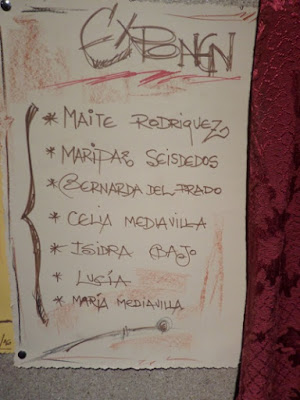 EXPONEN
* MAITE RODRIGUEZ
* MARIPAZ SEISDEDOS
* BERNARDA DEL PRADO
* CELIA MEDIAVILLA
* ISIDRA BAJO
* LUCÍA
* MARÍA MEDIAVILLA